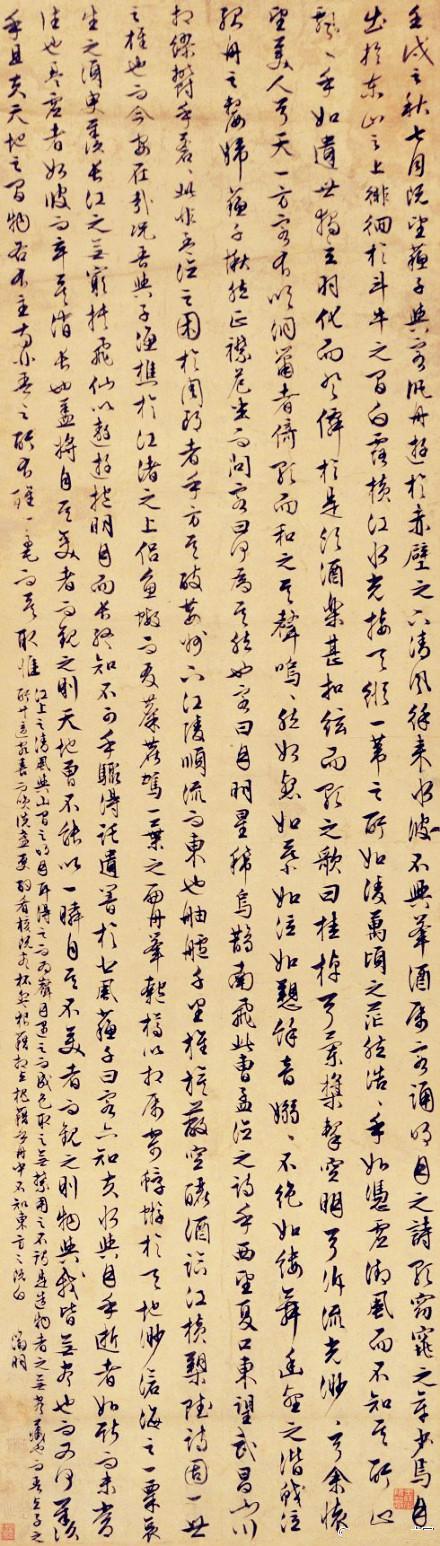 壬戌之秋七月既望蘇子與客泛舟遊於赤壁之下清風徐來水波不興舉酒屬客誦明月之詩歌窈窕之章少焉月
出於東山之上徘徊於斗牛之間白露橫江水光接天縱一葦之所如陵萬頃之茫然浩浩乎如憑虛御風而不知其所止
飄飄乎如遺世獨立羽化而登僊於是飲酒樂甚扣舷而歌之歌曰桂棹兮蘭槳擊空明兮泝流光渺渺兮余懷
望美人兮天一方客有吹洞簫者倚歌而和之其聲嗚嗚然如怨如慕如泣如愬餘音嫋嫋不絕如縷舞幽壑之潛蛟泣
孤舟之嫠婦蘇子愀然正襟危坐而問客曰何為其然也客曰月明星稀烏鵲南飛此曹孟德之詩乎西望夏口東望武昌山川
相繆鬱乎蒼蒼此非孟德之困於周郎者乎方其破荊州下江陵順流而東也舳艫千里旌旗蔽空釃酒臨江橫槊賦詩固一世
之雄也而今安在哉況吾與子漁樵於江渚之上侶魚蝦而友麋鹿駕一葉之扁舟舉匏樽以相屬寄蜉蝣於天地渺滄海之一粟哀
生之須臾羨長江之無窮挾飛仙以遨遊抱明月而長終知不可乎驟得託遺響於悲風蘇子曰客亦知夫水與月乎逝者如斯而未嘗
往也盈虛者如彼而卒莫消長也蓋將自其變者而觀之則天地曾不能以一瞬自其不變者而觀之則物與我皆無盡也而又何羨
乎且夫天地之間物各有主苟非吾之所有雖一毫而莫取惟
江上之清風與山間之明月耳得之而為聲目遇之而成色取之無禁用之不竭是造物者之無盡藏也而吾與子之
所共適客喜而笑洗盞更酌肴核既盡杯盤狼藉相與枕藉乎舟中不知東方之既白
徵明